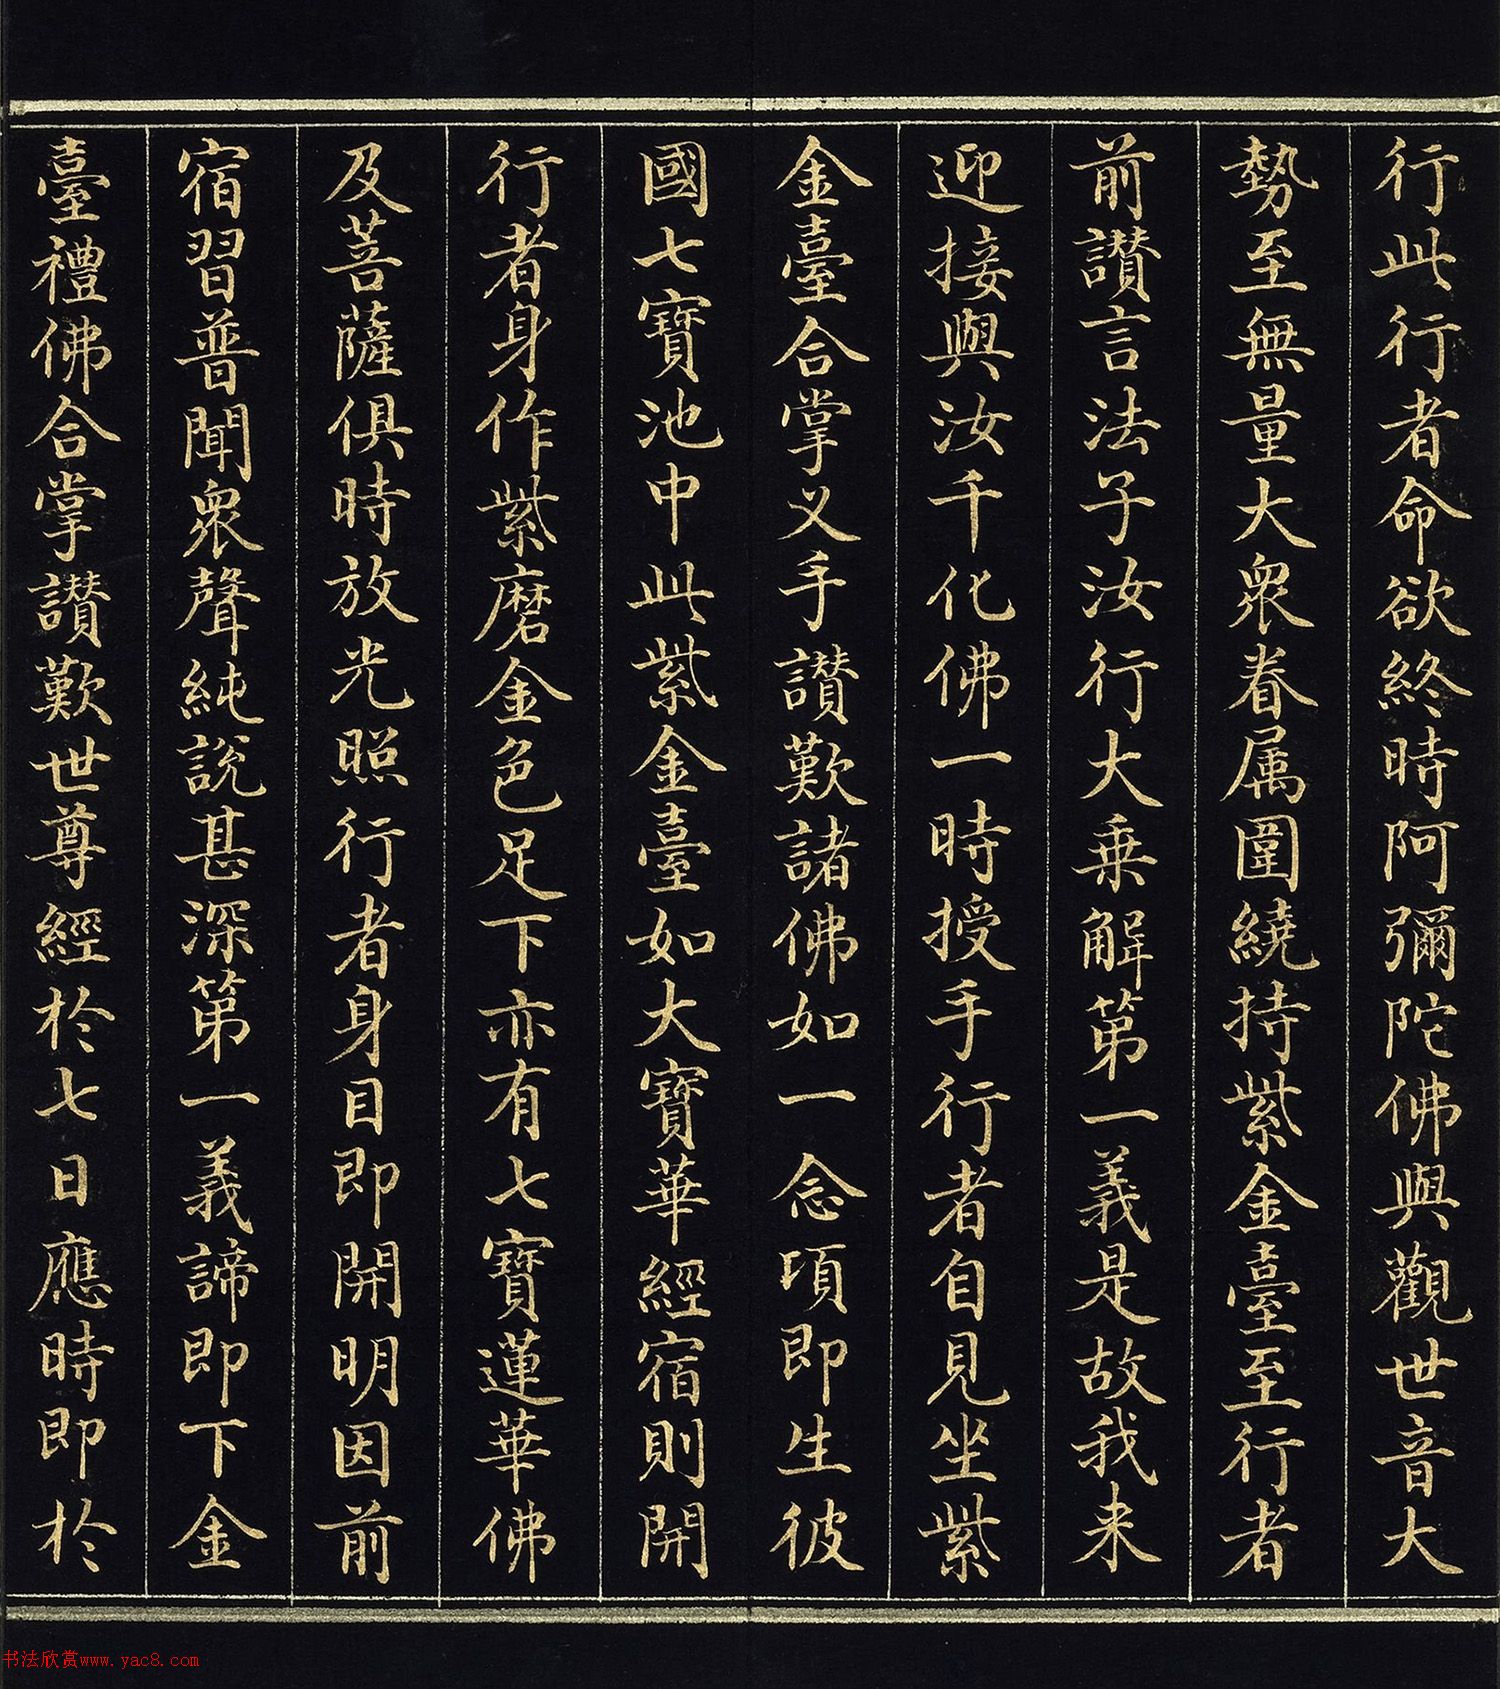 行此行者命欲終時阿彌陀佛與觀世音大
勢至無量大衆眷属圍繞持紫金臺至行者
前讃言法子汝行大乗解第一義是故我来
迎接與汝千化佛一時授手行者自見坐紫
金臺合掌叉手讃歎諸佛如一念頃即生彼
國七寶池中此紫金臺如大寶華經宿則開
行者身作紫磨金色足下亦有七寶蓮華佛
及菩薩俱時放光照行者身目即開明因前
宿習普聞衆聲純說甚深第一義諦即下金
臺禮佛合掌讃歎世尊經於七日應時即於
书法欣赏www.yac8.com